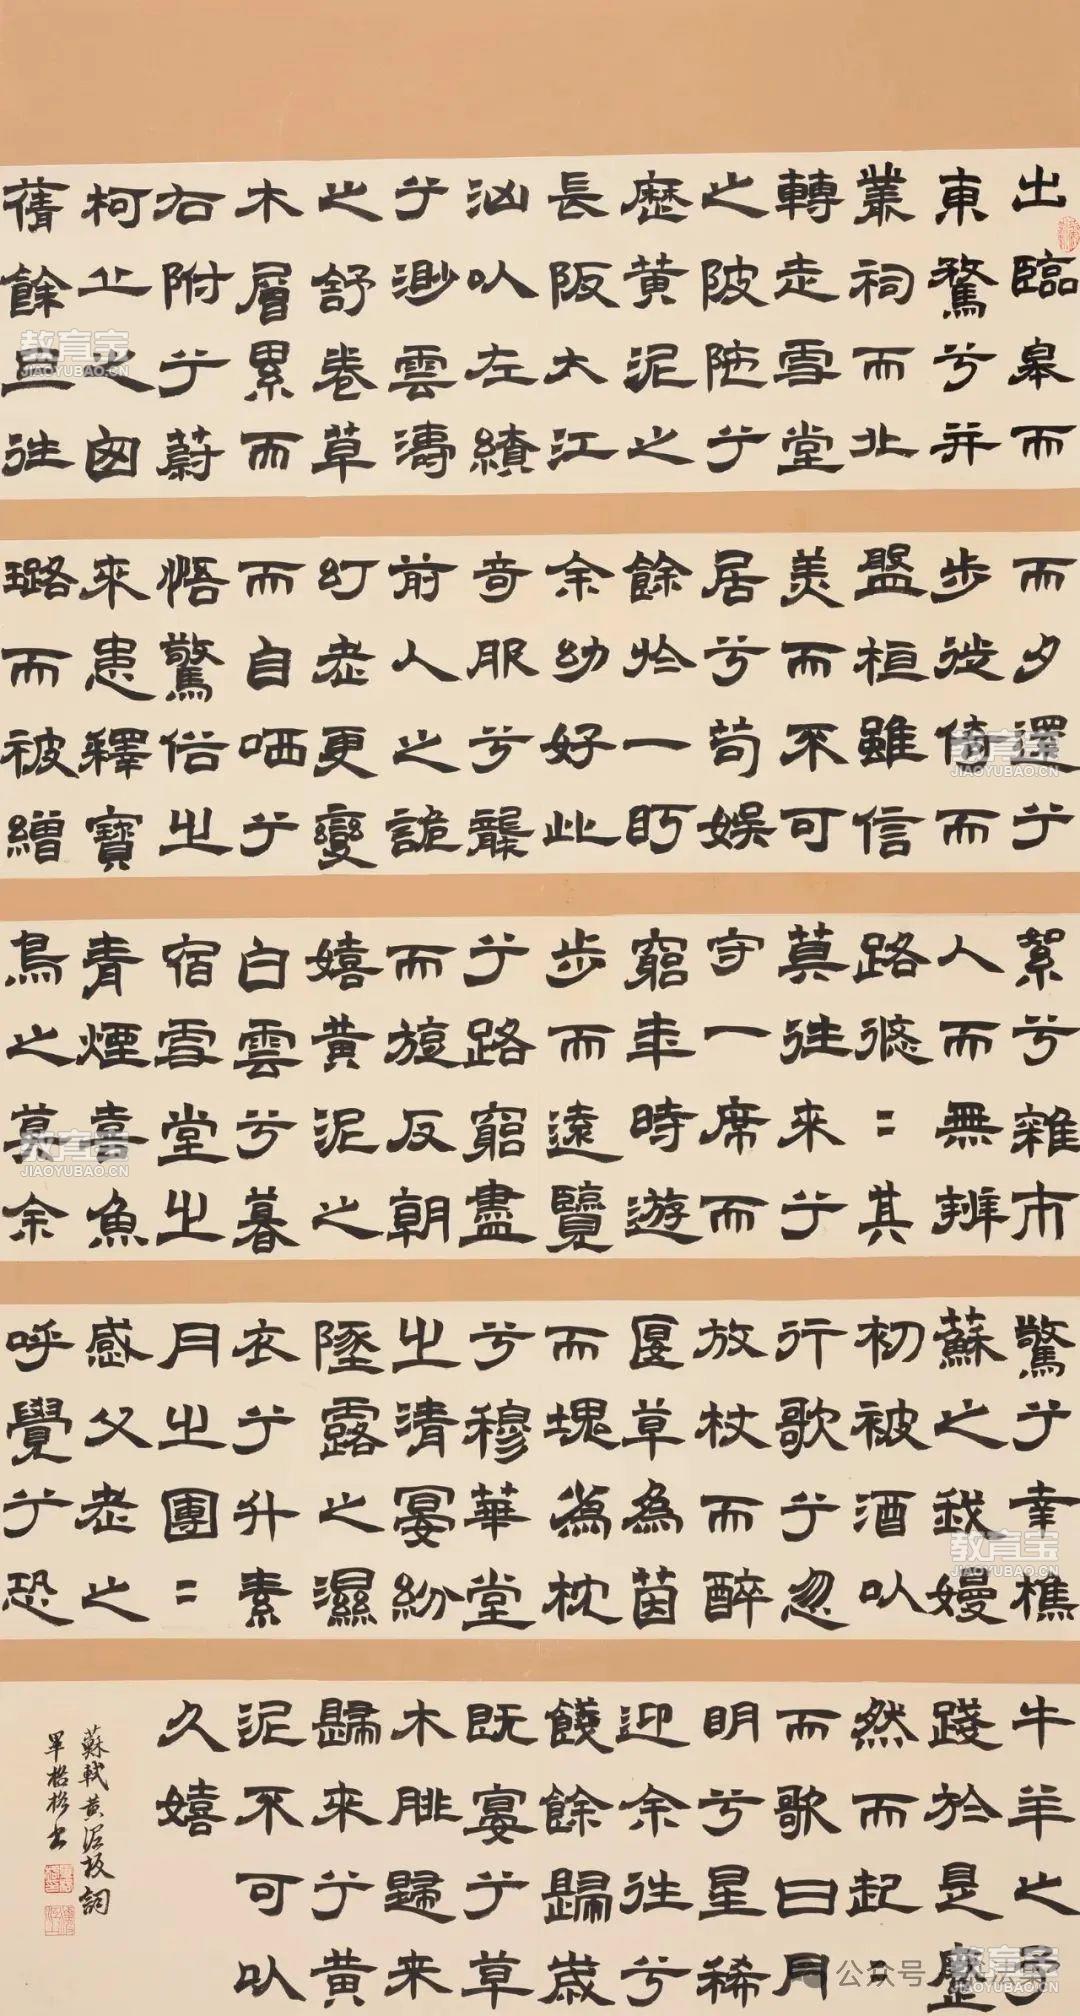 出臨皋而
東騖兮并
叢祠而北
轉走雪堂
之陂陀兮
歷黃泥之
長阪大江
洶以左繚
兮渺雲濤
之舒卷草
木層累而
右附兮蔚
柯丘之葱
蒨餘旦往
而夕還兮
步徙倚而
盤桓雖信
美而不可
居兮苟娛
餘於一眄
余幼好此
奇服兮襲
前人之詭
幻老更變
而自哂兮
悟驚俗之
來患釋寶
璐而被繒
絮兮雜市
人而無辨
路悠〻其
莫往來兮
守一席而
窮年時遊
步而遠覽
兮路窮盡
而旋反朝
嬉黃泥之
白雲兮暮
宿雪堂之
青煙喜魚
鳥之莫余
驚兮幸樵
蘇之我嫚
初被酒以
行歌兮忽
放杖而醉
偃草為茵
而塊為枕
兮穆華堂
之清宴紛
墜露之濕
衣兮升素
月之團〻
感父老之
呼覺兮恐
牛羊之予
踐於是蹙
然而起〻
而歌曰月
明兮星稀
迎余往兮
餞餘歸歲
既宴兮草
木腓歸來
歸來兮黃
泥不可以
久嬉
蘇軾黃泥坂詞
教育宝
JIAOYUBAO.CN
教育宝
JIAOYUBAO.CN
教育宝
JIAOYUBAO.CN
教育宝
JIAOYUBAO.CN
教育宝
JIAOYUBAO.CN
公众号